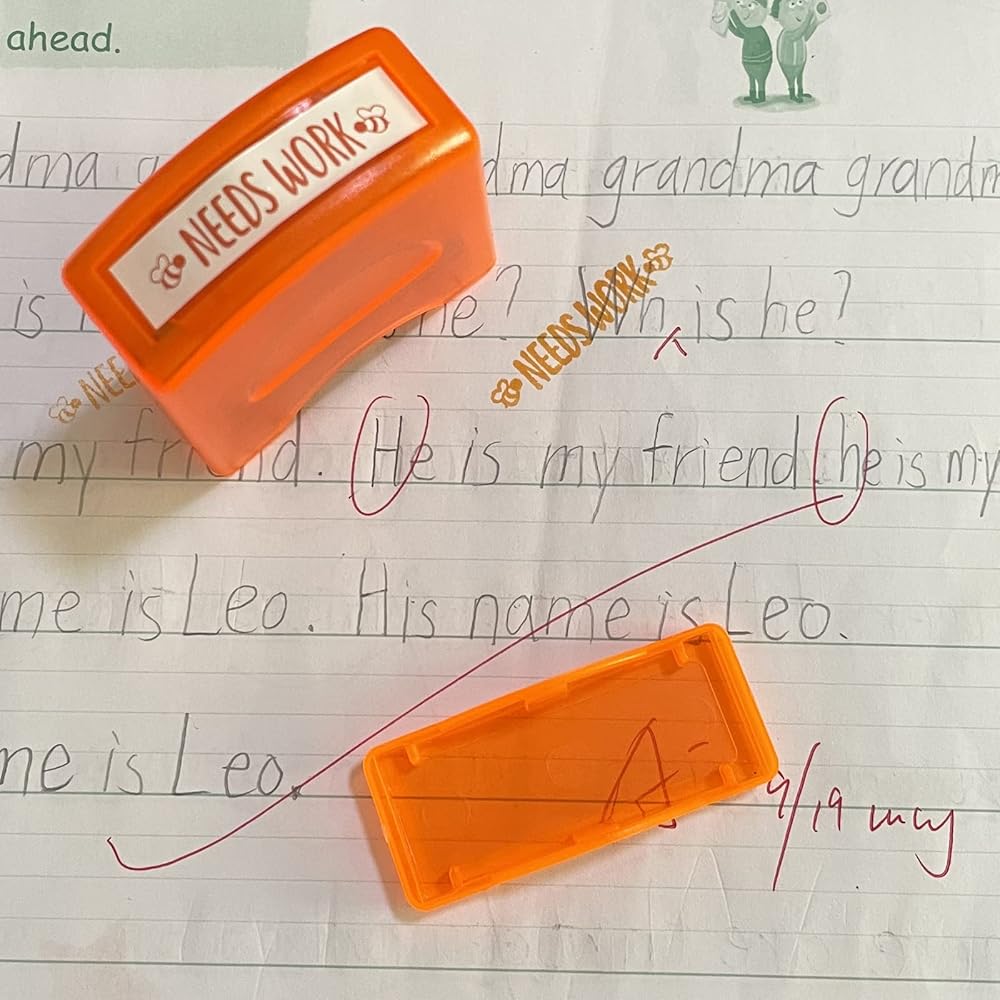 ahead.
NEEDS WORK
dma g dma grandma grandm
is he? Wh is he?
NEEDS WORK
NEE
my friend. He is my friend. he is my
me is Leo. His name is Leo.
me is Leo.
A-
9/19